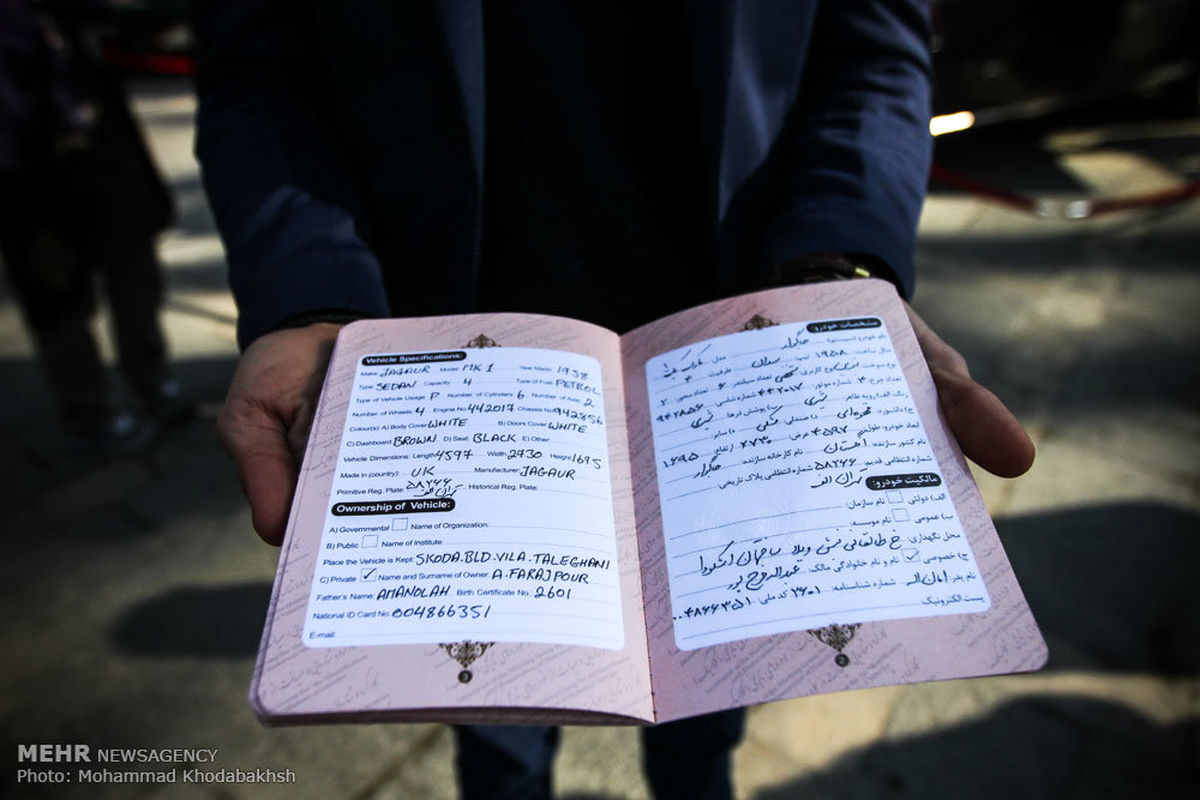 Vehicle Specifications:
Make: JAGAUR Model: MK 1 Year Made: 1958
Type: SEDAN Capacity: 4 Type of Fuel: PETROL
Type of Vehicle Usage: P Number of Cylinders: 6 Number of Axle: 2
Number of Wheels: 4 Engine No: 442017 Chassis No: 942856
Colour(s): A) Body Cover: WHITE B) Doors Cover: WHITE
C) Dashboard: BROWN D) Seat: BLACK E) Other:
Vehicle Dimensions: Length: 4597 Width: 2730 Height: 1695
Made in (country): UK Manufacturer: JAGAUR
Primitive Reg. Plate: ۵۸۲۶۶ تهران الف Historical Reg. Plate:
Ownership of Vehicle:
A) Governmental Name of Organization:
B) Public Name of Institute:
Place the Vehicle is Kept: SKODA.BLD.VILA.TALEGHANI
C) Private ✓ Name and Surname of Owner: A.FARAJPOUR
Father's Name: AMANOLAH Birth Certificate No.: 2601
National ID Card No.: 004866351
E-mail:
3
مشخصات خودرو:
نام خودرو (سیستم): جاگوار مدل:
سال ساخت: ۱۹۵۸ تیپ: سدان ظرفیت: ۴
نوع سوخت: بنزین نوع کاربری: شخصی تعداد سیلندر: ۶ تعداد محور: ۲
تعداد چرخ: ۴ شماره موتور: ۴۴۲۰۱۷ شماره شاسی: ۹۴۲۸۵۶
رنگ: الف) رویه ظاهر: شیری ب) پوشش درها: شیری
ج) داشبورد: قهوه‌ای د) صندلی: مشکی ه) سایر:
ابعاد خودرو: طول: ۴۵۹۷ عرض: ۲۷۳۰ ارتفاع: ۱۶۹۵
نام کشور سازنده: انگلستان نام کارخانه سازنده: جاگوار
شماره انتظامی قدیم: ۵۸۲۶۶ تهران الف شماره انتظامی پلاک تاریخی:
مالکیت خودرو:
الف) دولتی نام سازمان:
ب) عمومی نام موسسه:
محل نگهداری: خ طالقانی نبش ویلا ساختمان اسکودا
ج) خصوصی ✓ نام و نام خانوادگی مالک: عبداله فرج پور
نام پدر: امان اله شماره شناسنامه: ۲۶۰۱ کد ملی: ۰۰۴۸۶۶۳۵۱
پست الکترونیک:
2
MEHR NEWSAGENCY
Photo: Mohammad Khodabakhsh